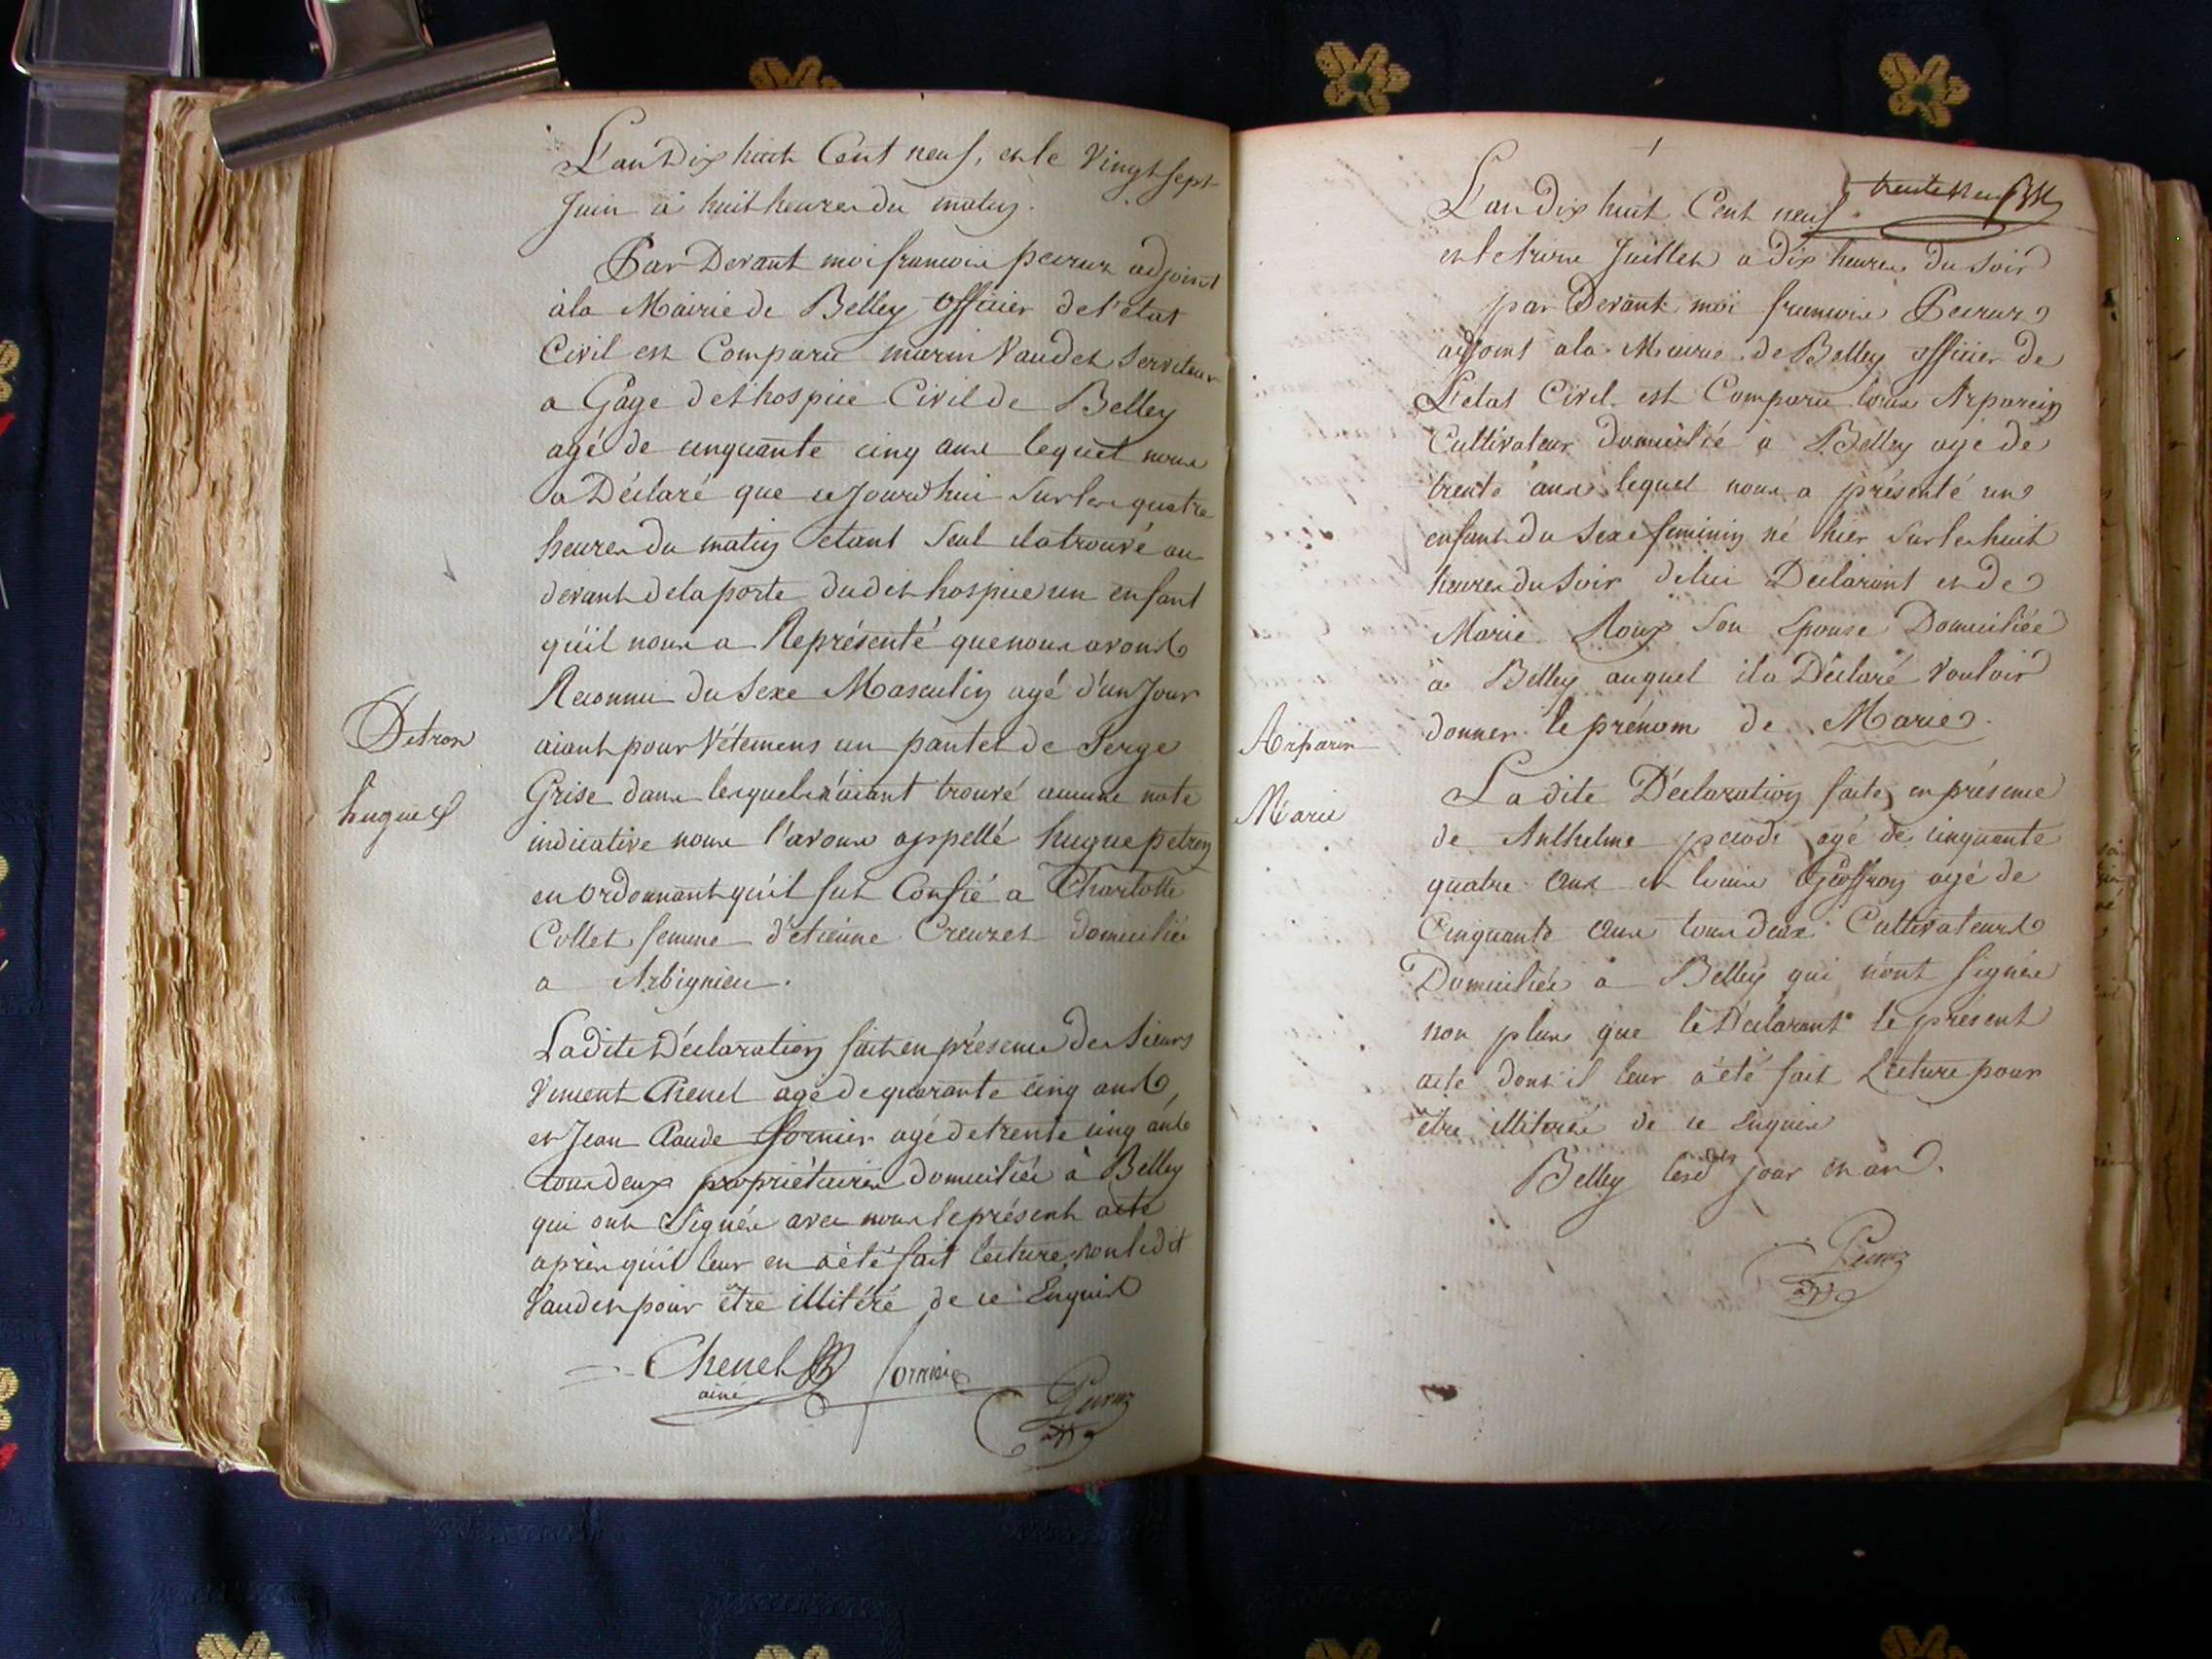 L'an Dix huit Cent neuf, et le Vingt sept
Juin à huit heures du matin.
Par Devant moi françois peuruz adjoint
à la Mairie de Belley officier de l'état
Civil est Comparu marin Vaudet Serviteur
a Gage de l'hospice Civil de Belley
agé de cinquante cinq ans lequel nous
a Déclaré que ce Jourd'hui Sur les quatre
heures du matin étant Seul il a trouvé au
devant de la porte dudit hospice un enfant
qu'il nous a Représenté que nous avons
Reconnu du Sexe Masculin agé d'un Jour
aiant pour Vétemens un pantet de Serge
Grise dans lesquels n'aiant trouvé aucune note
indicative nous l'avons appellé hugue petron
en ordonnant qu'il fut Confié a Charlotte
Collet femme d'étienne Creuzet domiciliée
a Arbignieu.
La dite Déclaration fait en présence des Sieurs
Vincent Chenel agé de quarante cinq ans,
et Jean Claude Sornier agé de trente cinq ans
tous deux propriétaires domiciliés à Belley
qui ont Signés avec nous le présent acte
après qu'il leur en a été fait lecture, non ledit
Vaudet pour être illitéré de ce Enquis
Chenel
ainé
Petron
hugue
trente neuf
L'an Dix huit Cent neuf
et le trois Juillet a dix heures du Soir
par Devant moi françois Peuruz
adjoint a la Mairie de Belley officier de
L'etat Civil est Comparu louis Arparin
Cultivateur domicilié a Belley agé de
trente ans lequel nous a présenté un
enfant du Sexe feminin né hier Sur les huit
heures du Soir de lui Déclarant et de
Marie Roux Son Epouse Domiciliée
à Belley auquel il a Déclaré Vouloir
donner le prénom de Marie.
La dite Déclaration faite en présence
de Anthelme agé de cinquante
quatre ans et louis Geoffroy agé de
Cinquante ans tous deux Cultivateurs
Domiciliés à Belley qui n'ont Signés
non plus que le Déclarant le présent
acte dont il leur a été fait Lecture pour
être illiterés de ce Enquis
Belley lesd jour et an.
Arparin
Marie